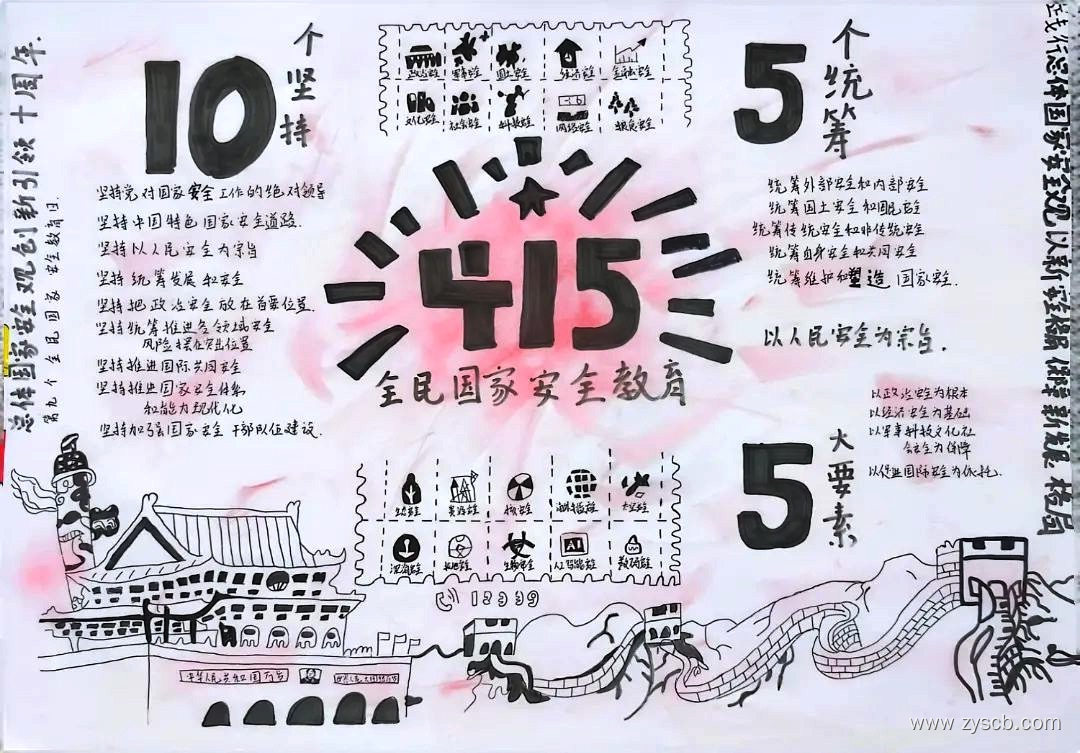 总体国家安全观创新引领十周年.
第九个全民国家安全教育日.
10
个坚持
坚持党对国家安全工作的绝对领导
坚持中国特色国家安全道路.
坚持以人民安全为宗旨
坚持统筹发展和安全
坚持把政治安全放在首要位置.
坚持统筹推进各领域安全
风险摆在突出位置
坚持推进国际共同安全
坚持推进国家安全体系
和能力现代化
坚持加强国家安全干部队伍建设.
政治安全
军事安全
国土安全
经济安全
金融安全
文化安全
社会安全
科技安全
网络安全
粮食安全
415
全民国家安全教育
5
个统筹
统筹外部安全和内部安全
统筹国土安全和国民安全
统筹传统安全和非传统安全
统筹自身安全和共同安全
统筹维护和塑造国家安全.
以人民安全为宗旨.
5
大要素
以政治安全为根本
以经济安全为基础
以军事科技文化社
会安全为保障
以促进国际安全为依托.
生态安全
资源安全
核安全
海外利益安全
太空安全
深海安全
极地安全
生物安全
AI
人工智能安全
数据安全
12339
中华人民共和国万岁
践行总体国家安全观以新安全格局保障新发展格局
www.zyscb.com